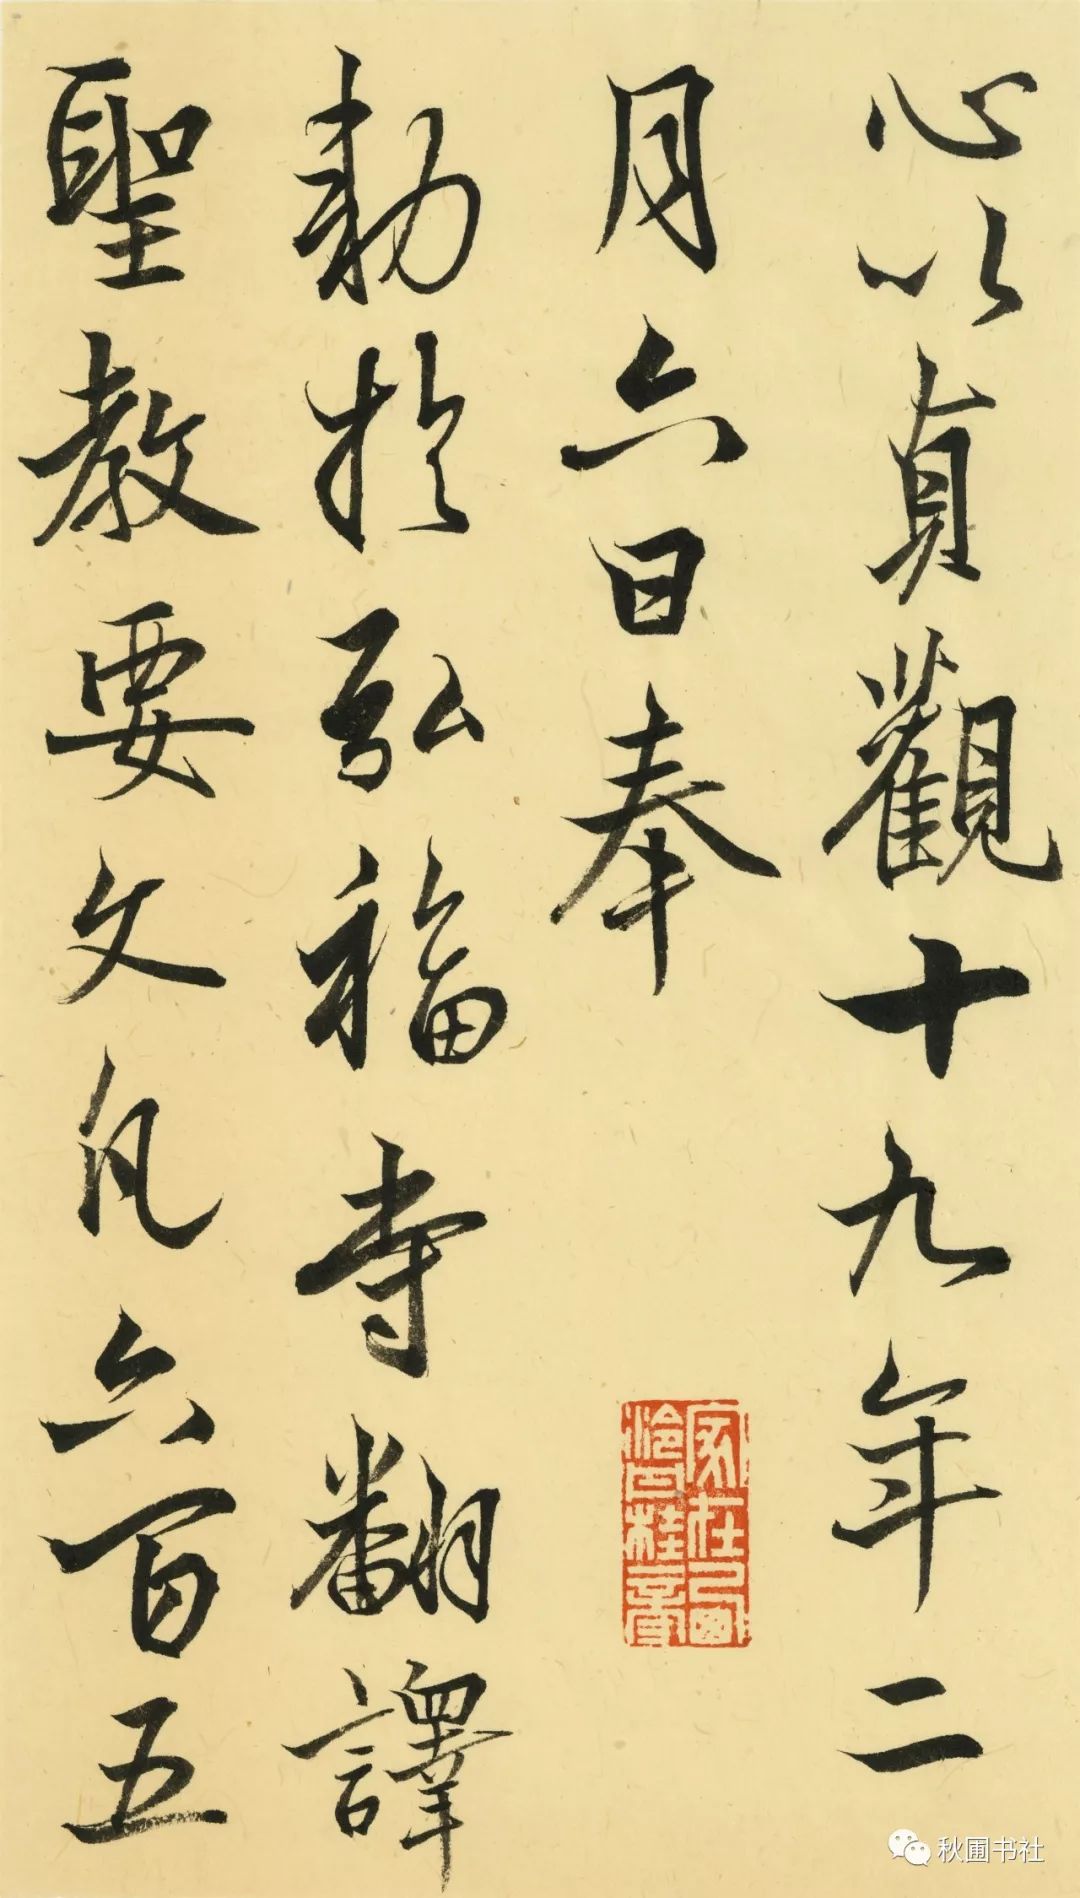 心以貞觀十九年二
月六日奉
勅於弘福寺翻譯
聖教要文凡六百五
秋圃书社